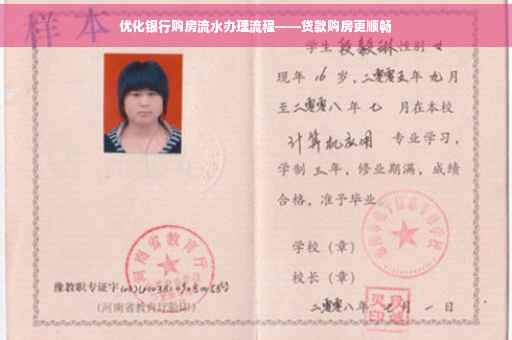 优化银行购房流水办理流程——贷款购房更顺畅
样本
学生段毅琳性别女
现年16岁，二零零五年九月
至二零零八年七月在本校
计算机应用 专业学习，
学制三年，修业期满，成绩
合格，准予毕业。
学校（章）
校长（章）
二零零八年七月一日
河南省教育厅
豫教职专证字
（河南省教育厅验印）